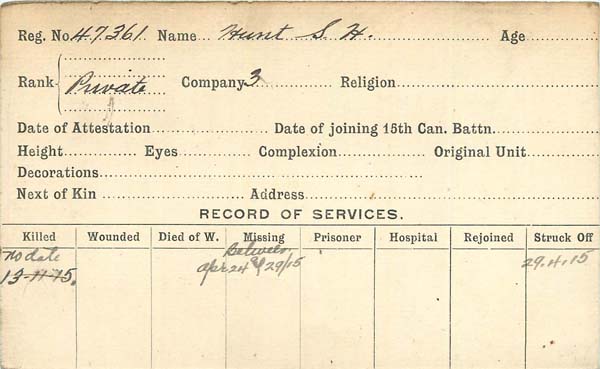 Reg. No 47361 Name Hunt S. H. Age
Rank Private Company 3 Religion
Date of Attestation Date of joining 15th Can. Battn.
Height Eyes Complexion Original Unit
Decorations
Next of Kin Address
RECORD OF SERVICES.
Killed Wounded Died of W. Missing Prisoner Hospital Rejoined Struck Off
no date Between
13-11-15. apr 24 & 29/15 29.4.15